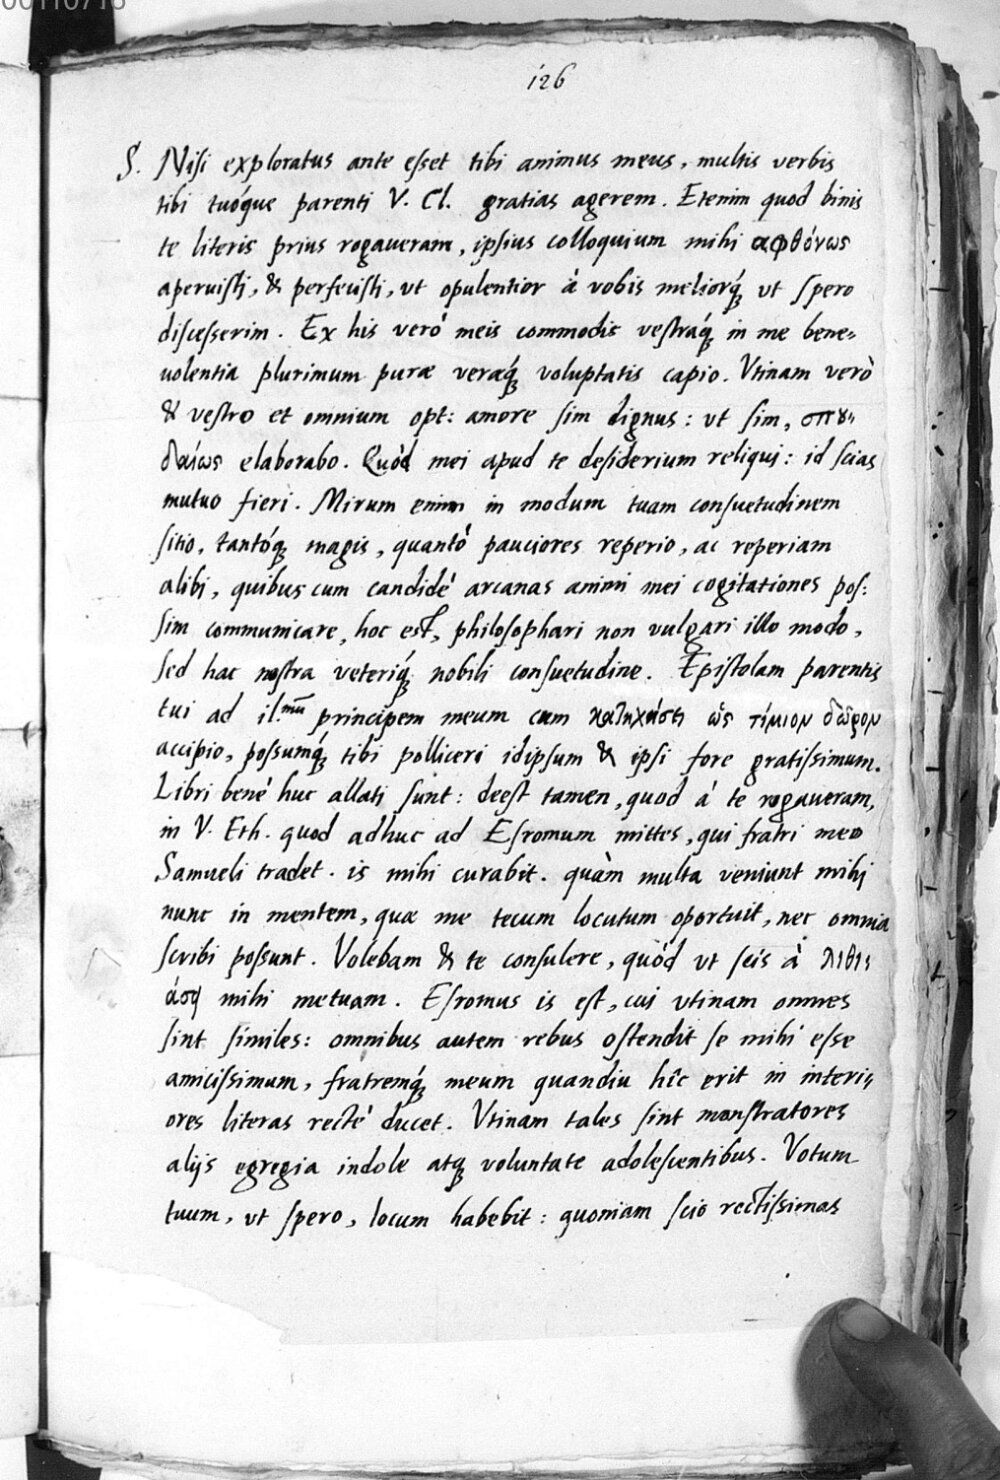 00110716
126
S. Nisi exploratus ante esset tibi animus meus, multis verbis
tibi tuóque parenti V. Cl. gratias agerem. Etenim quod binis
te literis prius rogaveram, ipsius colloquium mihi αφθόνως
aperuisti, & perfecisti, ut opulentior à vobis meliorq́ ut spero
discesserim. Ex his verò meis commodis vestraq́ in me bene=
uolentia plurimum puræ veræq́ voluptatis capio. Vtinam verò
& vestro et omnium opt: amore sim dignus: ut sim, σπȣ=
δαίως elaborabo. Quòd mei apud te desiderium reliqui: id scias
mutuo fieri. Mirum enim in modum tuam consuetudinem
sitio, tantóq magis, quantò pauciores reperio, ac reperiam
alibi, quibus cum candidè arcanas animi mei cogitationes pos=
sim communicare, hoc est, philosophari non vulgari illo modo,
sed hac nostra veteriq́ nobili consuetudine. Epistolam parentis
tui ad il.mū principem meum cum ὡς τίμιον δῶρον
accipio, possumq́ tibi polliceri idipsum & ipsi fore gratissimum.
Libri benè huc allati sunt: deest tamen, quod à te rogaveram,
in V. Eth. quod adhuc ad Esromum mittes, qui fratri meo
Samueli tradet. is mihi curabit. quàm multa veniunt mihi
nunc in mentem, quæ me tecum locutum oportuit, nec omnia
scribi possunt. Volebam & te consulere, quòd ut scis à λιθι
mihi metuam. Esromus is est, cui utinam omnes
sint similes: omnibus autem rebus ostendit se mihi esse
amicissimum, fratremq́ meum quandiu hîc erit in interi=
ores literas rectè ducet. Vtinam tales sint monstratores
alijs egregia indole atq voluntate adolescentibus. Votum
tuum, ut spero, locum habebit: quoniam scio rectissimas